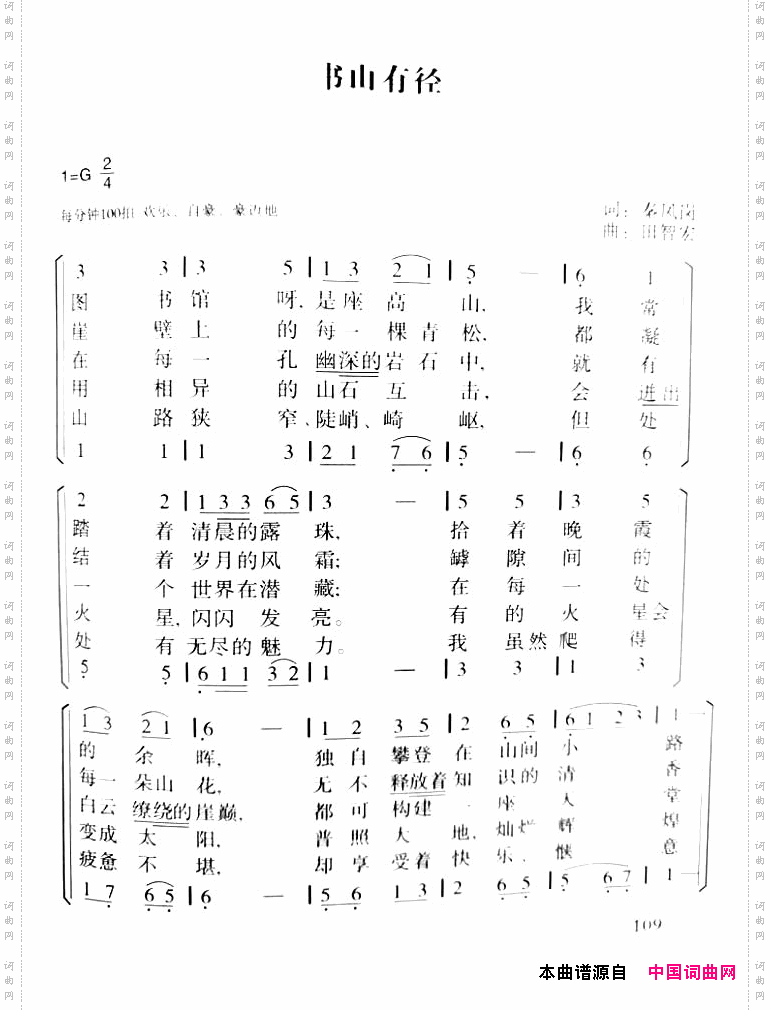 书山有径
1=G 2/4
每分钟100拍 欢乐、自豪、豪迈地
词：秦风岗
曲：田智宏
3 3 | 3 5 | 1 3 2 1 | 5 — | 6 1
图 书 馆 呀,是座高 山, 我 常
崖 壁 上 的每一棵青松, 都 凝
在 每 一 孔幽深的岩石中, 就 有
用 相 异 的山石互 击, 会 迸出
山 路 狭 窄、陡峭、崎 岖, 但 处
1 1 | 1 3 | 2 1 7 6 | 5 — | 6 6
2 2 | 1 3 3 6 5 | 3 — | 5 5 | 3 5
踏 着 清晨的露 珠, 拾 着 晚 霞
结 着 岁月的风 霜; 罅 隙 间 的
一 个 世界在潜 藏; 在 每 一 处
火 星,闪闪 发 亮。 有 的 火 星会
处 有 无尽的魅 力。 我 虽然 爬 得
5 5 | 6 1 1 3 2 | 1 — | 3 3 | 1 3
1 3 2 1 | 6 — | 1 2 3 5 | 2 6 5 | 6 1 2 3 | 1 —
的 余 晖, 独自攀登在 山间小 路
每一朵山花, 无不释放着知 识的清 香
白云缭绕的崖巅, 都可构建一 座人 堂
变成 太 阳, 普照大 地,灿烂辉 煌
疲惫 不 堪, 却享受着快 乐、惬 意
1 7 6 5 | 6 — | 5 6 1 3 | 2 6 5 | 5 6 7 | 1 —
109
本曲谱源自 中国词曲网